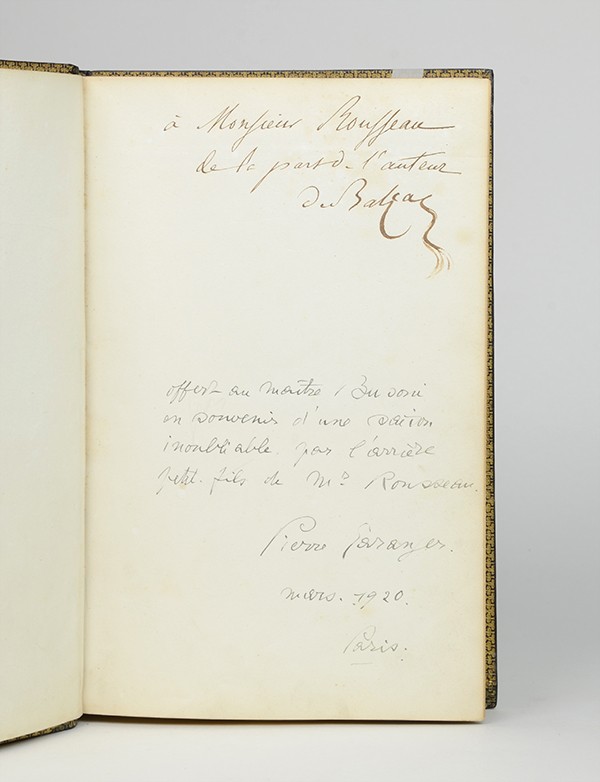 à Monsieur Rousseau
de la part de l'auteur
De Balzac
offert au maître Busoni
en souvenir d'une saison
inoubliable par l'arrière
petit-fils de Mr Rousseau.
Pierre
mars. 1920.
Paris.